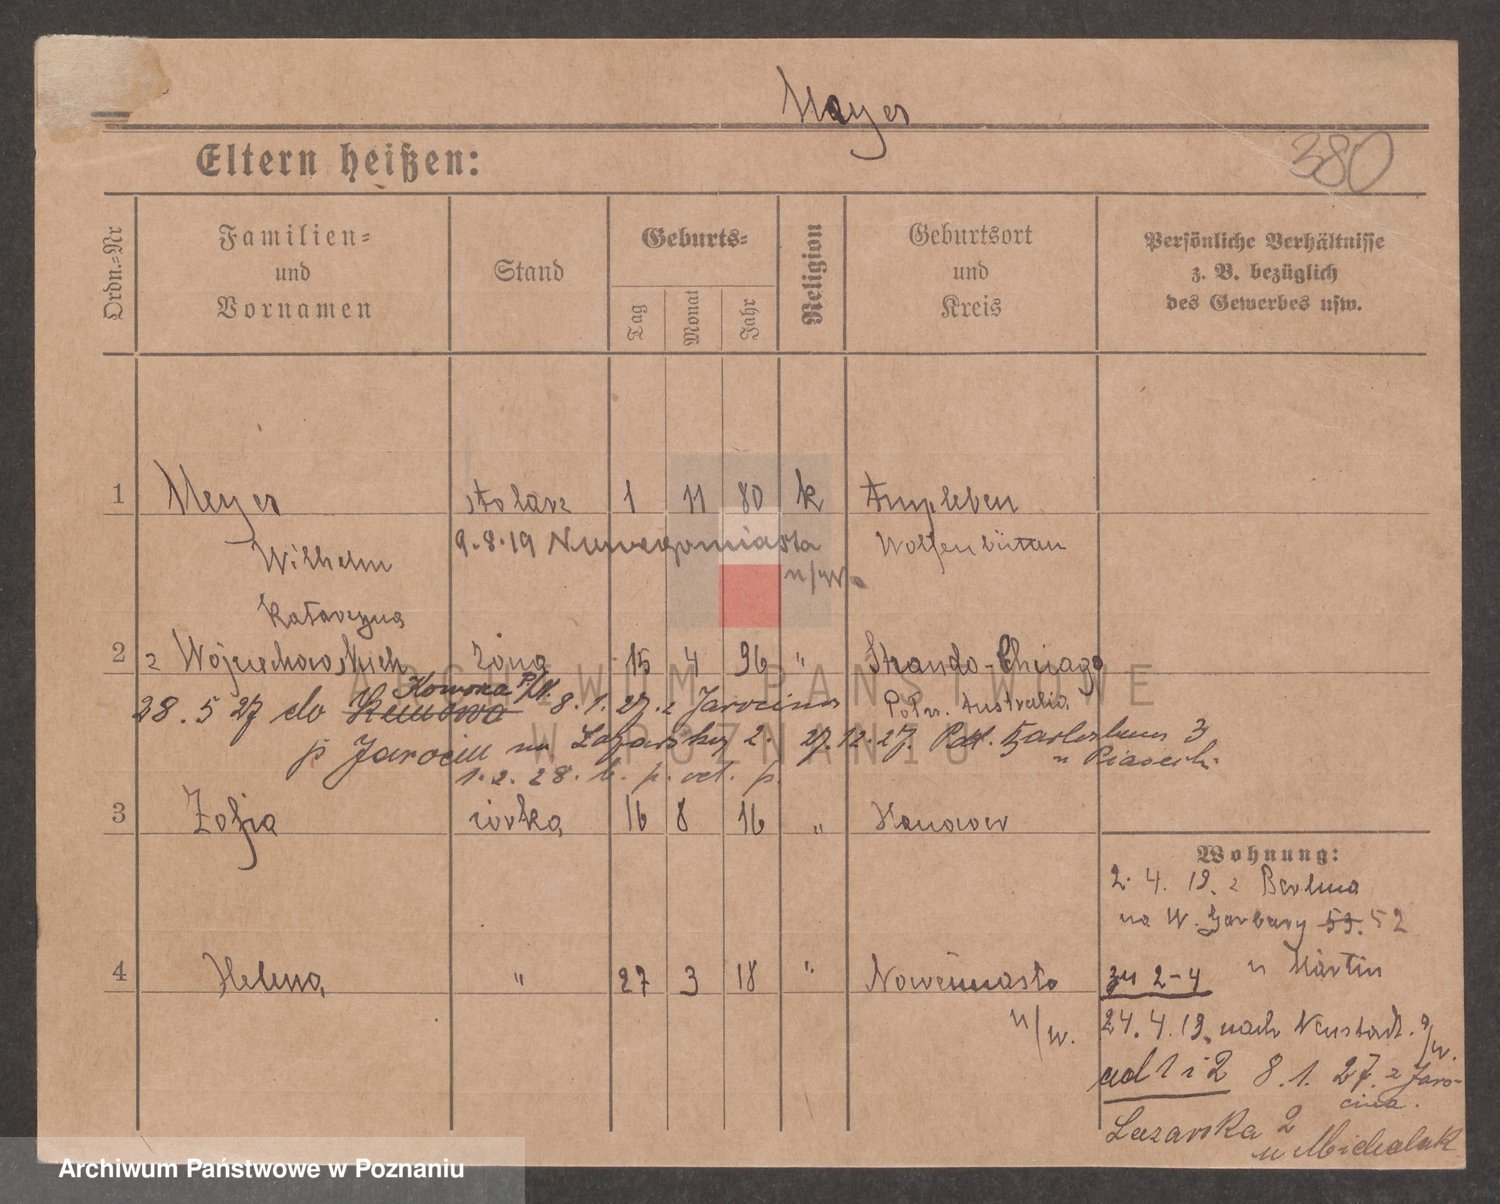 Meyer
380
Eltern heißen:
Ordn.-Nr
Familien-
und
Vornamen
Stand
Geburts-
Tag
Monat
Jahr
Religion
Geburtsort
und
Kreis
Persönliche Verhältnisse
z. B. bezüglich
des Gewerbes usw.
1 Meyer stolarz 1 11 80 k Ampleben
Wilhelm 9.8.19 Nowegomiasta Wolfenbüttau
n/W.
Katarzyna
2 z Wojciechowskich żona 15 4 96 " Strando-Chicago
28. 5 27 do Komorza p/N. 8.1.27. z Jarocina Połn. Australia
p Jarocin na Łazarską 2. 27.12.27.
u Piasecki.
1.2.28.
3 Zofja córka 16 8 16 " Hanower
Wohnung:
2. 4. 19. z Berlina
na W. Garbary 53. 52
u Martin
4 Helena " 27 3 18 " Nowemiasto
n/W.
zu 2-4
24. 4. 19. nach Neustadt. a/W.
ad 1 i 2 8. 1. 27. z Jaro-
cina.
Łazarska 2
u Michalak
ARCHIWUM PAŃSTWOWE
W POZNANIU
Archiwum Państwowe w Poznaniu